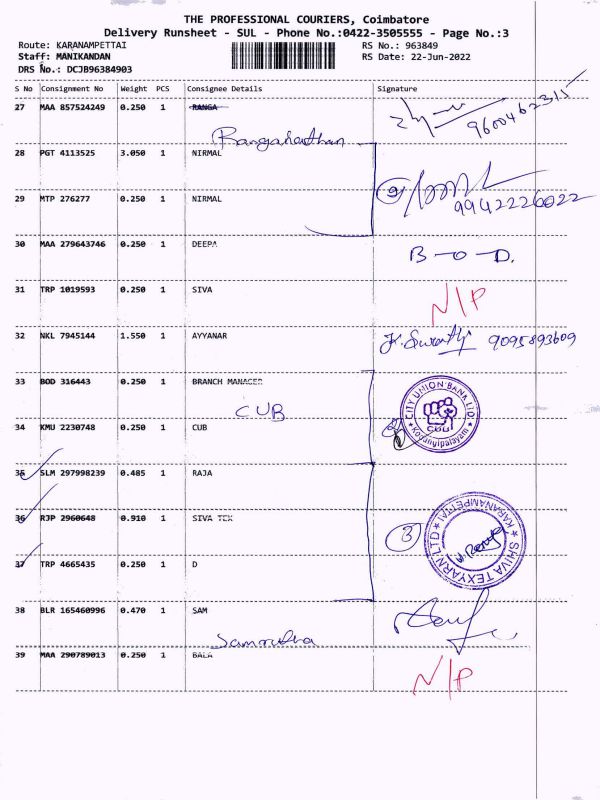 THE PROFESSIONAL COURIERS, Coimbatore
Delivery Runsheet - SUL - Phone No.:0422-3505555 - Page No.:3
Route: KARANAMPETTAI RS No.: 963849
Staff: MANIKANDAN RS Date: 22-Jun-2022
DRS No.: DCJB96384903
S No Consignment No Weight PCS Consignee Details Signature
27 MAA 857524249 0.250 1 RANGA 9600462315
28 PGT 4113525 3.050 1 NIRMAL
29 MTP 276277 0.250 1 NIRMAL 9942226022
30 MAA 279643746 0.250 1 DEEPA B-O-D.
31 TRP 1019593 0.250 1 SIVA N/P
32 NKL 7945144 1.550 1 AYYANAR K.Swathi 9095893609
33 BOD 316443 0.250 1 BRANCH MANAGER
CUB
CITY UNION BANK LTD
34 KMU 2230748 0.250 1 CUB
35 SLM 297998239 0.485 1 RAJA
36 RJP 2960648 0.910 1 SIVA TEX
3
SHIVA TEXYARN LTD KARANAMPETTAI
37 TRP 4665435 0.250 1 D
38 BLR 165460996 0.470 1 SAM
39 MAA 290789013 0.250 1 BALA N/P